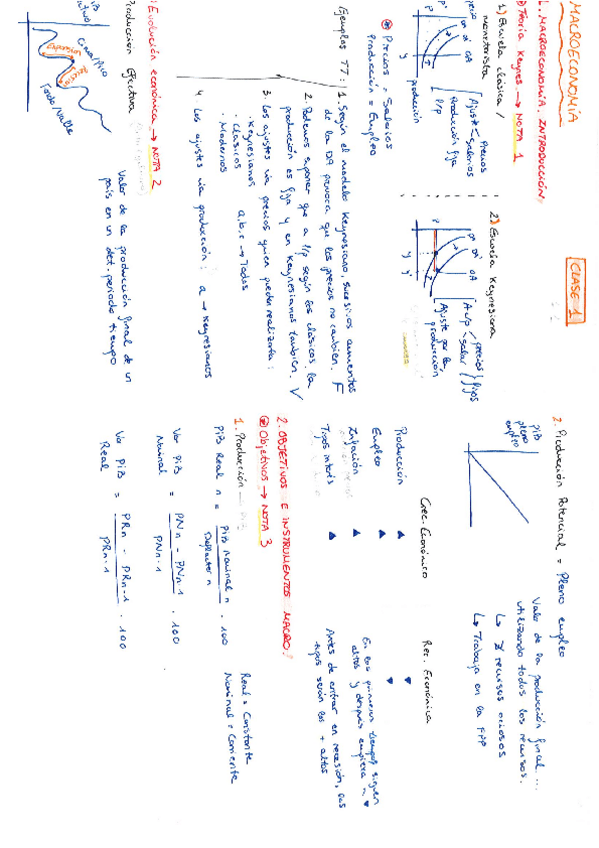 MACROECONOMÍA
CLASE 1
1. MACROECONOMÍA. INTRODUCCIÓN
Teoría Keynes. → NOTA 1
1) Escuela clásica /
monetarista
precio
DA' DA
P'
P
y
producción
Ajuste
Precios
Salarios
Producción fija
l/p
⊛ Precios = Salarios
Producción = Empleo
2) Escuela Keynesiana
DA' DA
P
y y'
A c/p
precios
salar
fijos
Ajuste por la
producción
Ejemplos TT:
1. Según el modelo Keynesiano, sucesivos aumentos
de la DA provoca que los precios no cambien. F
2. Podemos suponer que a l/p según los clásicos la
producción es fija y en Keynesianos también. V
3. Los ajustes vía precios quien puede realizarla:
· Keynesianos
· Clásicos
· Modernos
a, b, c → Todos
4. Los ajustes vía producción: a → Keynesianos
Evolución económica → NOTA 2
Producción Efectiva
Valor de la producción final de un
país en un det. periodo tiempo
PIB
Cima/Pico
Expansión
Recesión
Fondo/Valle
2. Producción Potencial = Pleno empleo
PIB
pleno
empleo
Valor de la producción final...
utilizando todos los recursos.
↳ ∄ recursos ociosos
↳ Trabaja en la FPP
Crec. Económico
Rec. Económica
Producción ▲ ▼
Empleo ▲ ▼
Inflación ▲
En los primeros tiempos siguen
altos y después empieza a ▼
Tipos interés ▲
Antes de entrar en recesión, los
tipos serán los + altos
2. OBJETIVOS E INSTRUMENTOS MACRO:
⊛ Objetivos → NOTA 3
1. Producción
PIB Real n = PIB nominal n / Deflactor n · 100
Real = Constante
Nominal = Corriente
Var PIB Nominal = PNn - PNn-1 / PNn-1 · 100
Va PIB Real = PRn - PRn-1 / PRn-1 · 100